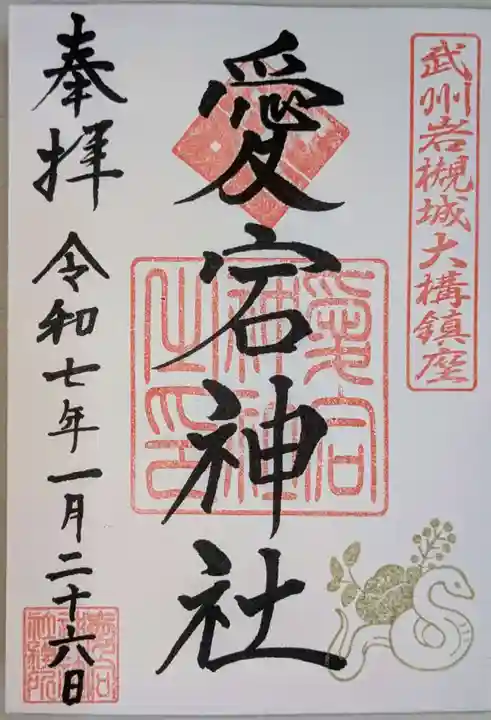 武州岩槻城大構鎮座
愛宕神社
愛宕神社之印
奉拝
令和七年一月二十六日